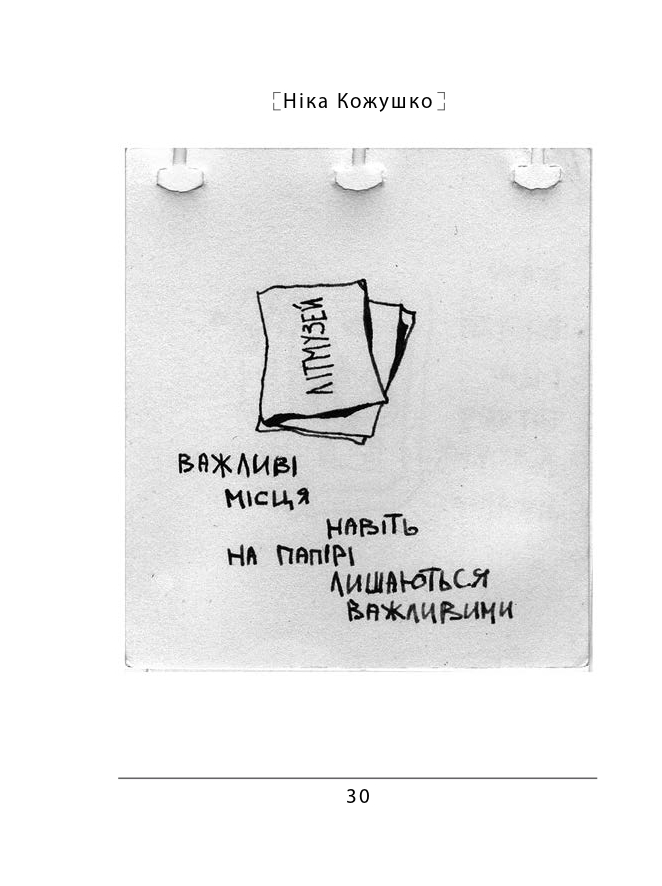 [Ніка Кожушко]
ЛІТМУЗЕЙ
ВАЖЛИВІ
МІСЦЯ
НАВІТЬ
НА ПАПІРІ
ЛИШАЮТЬСЯ
ВАЖЛИВИМИ
30